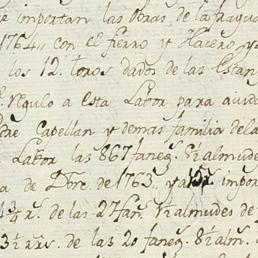 e importan las obras de la fragua
1764,, con el fierro y Hacero, y
los 12. toros dados de las Estan
Regulo a esta Labor para ayud
Capellan y demas familia de la
Labor las 867 faneg.^s 5½ almudes
a de Dre. de 1763. y a impor
4¾ r.^s de las 27 fan.^s ½ almudes de
3½ r.^s de las 20 faneg.^s 8½ alm.^s